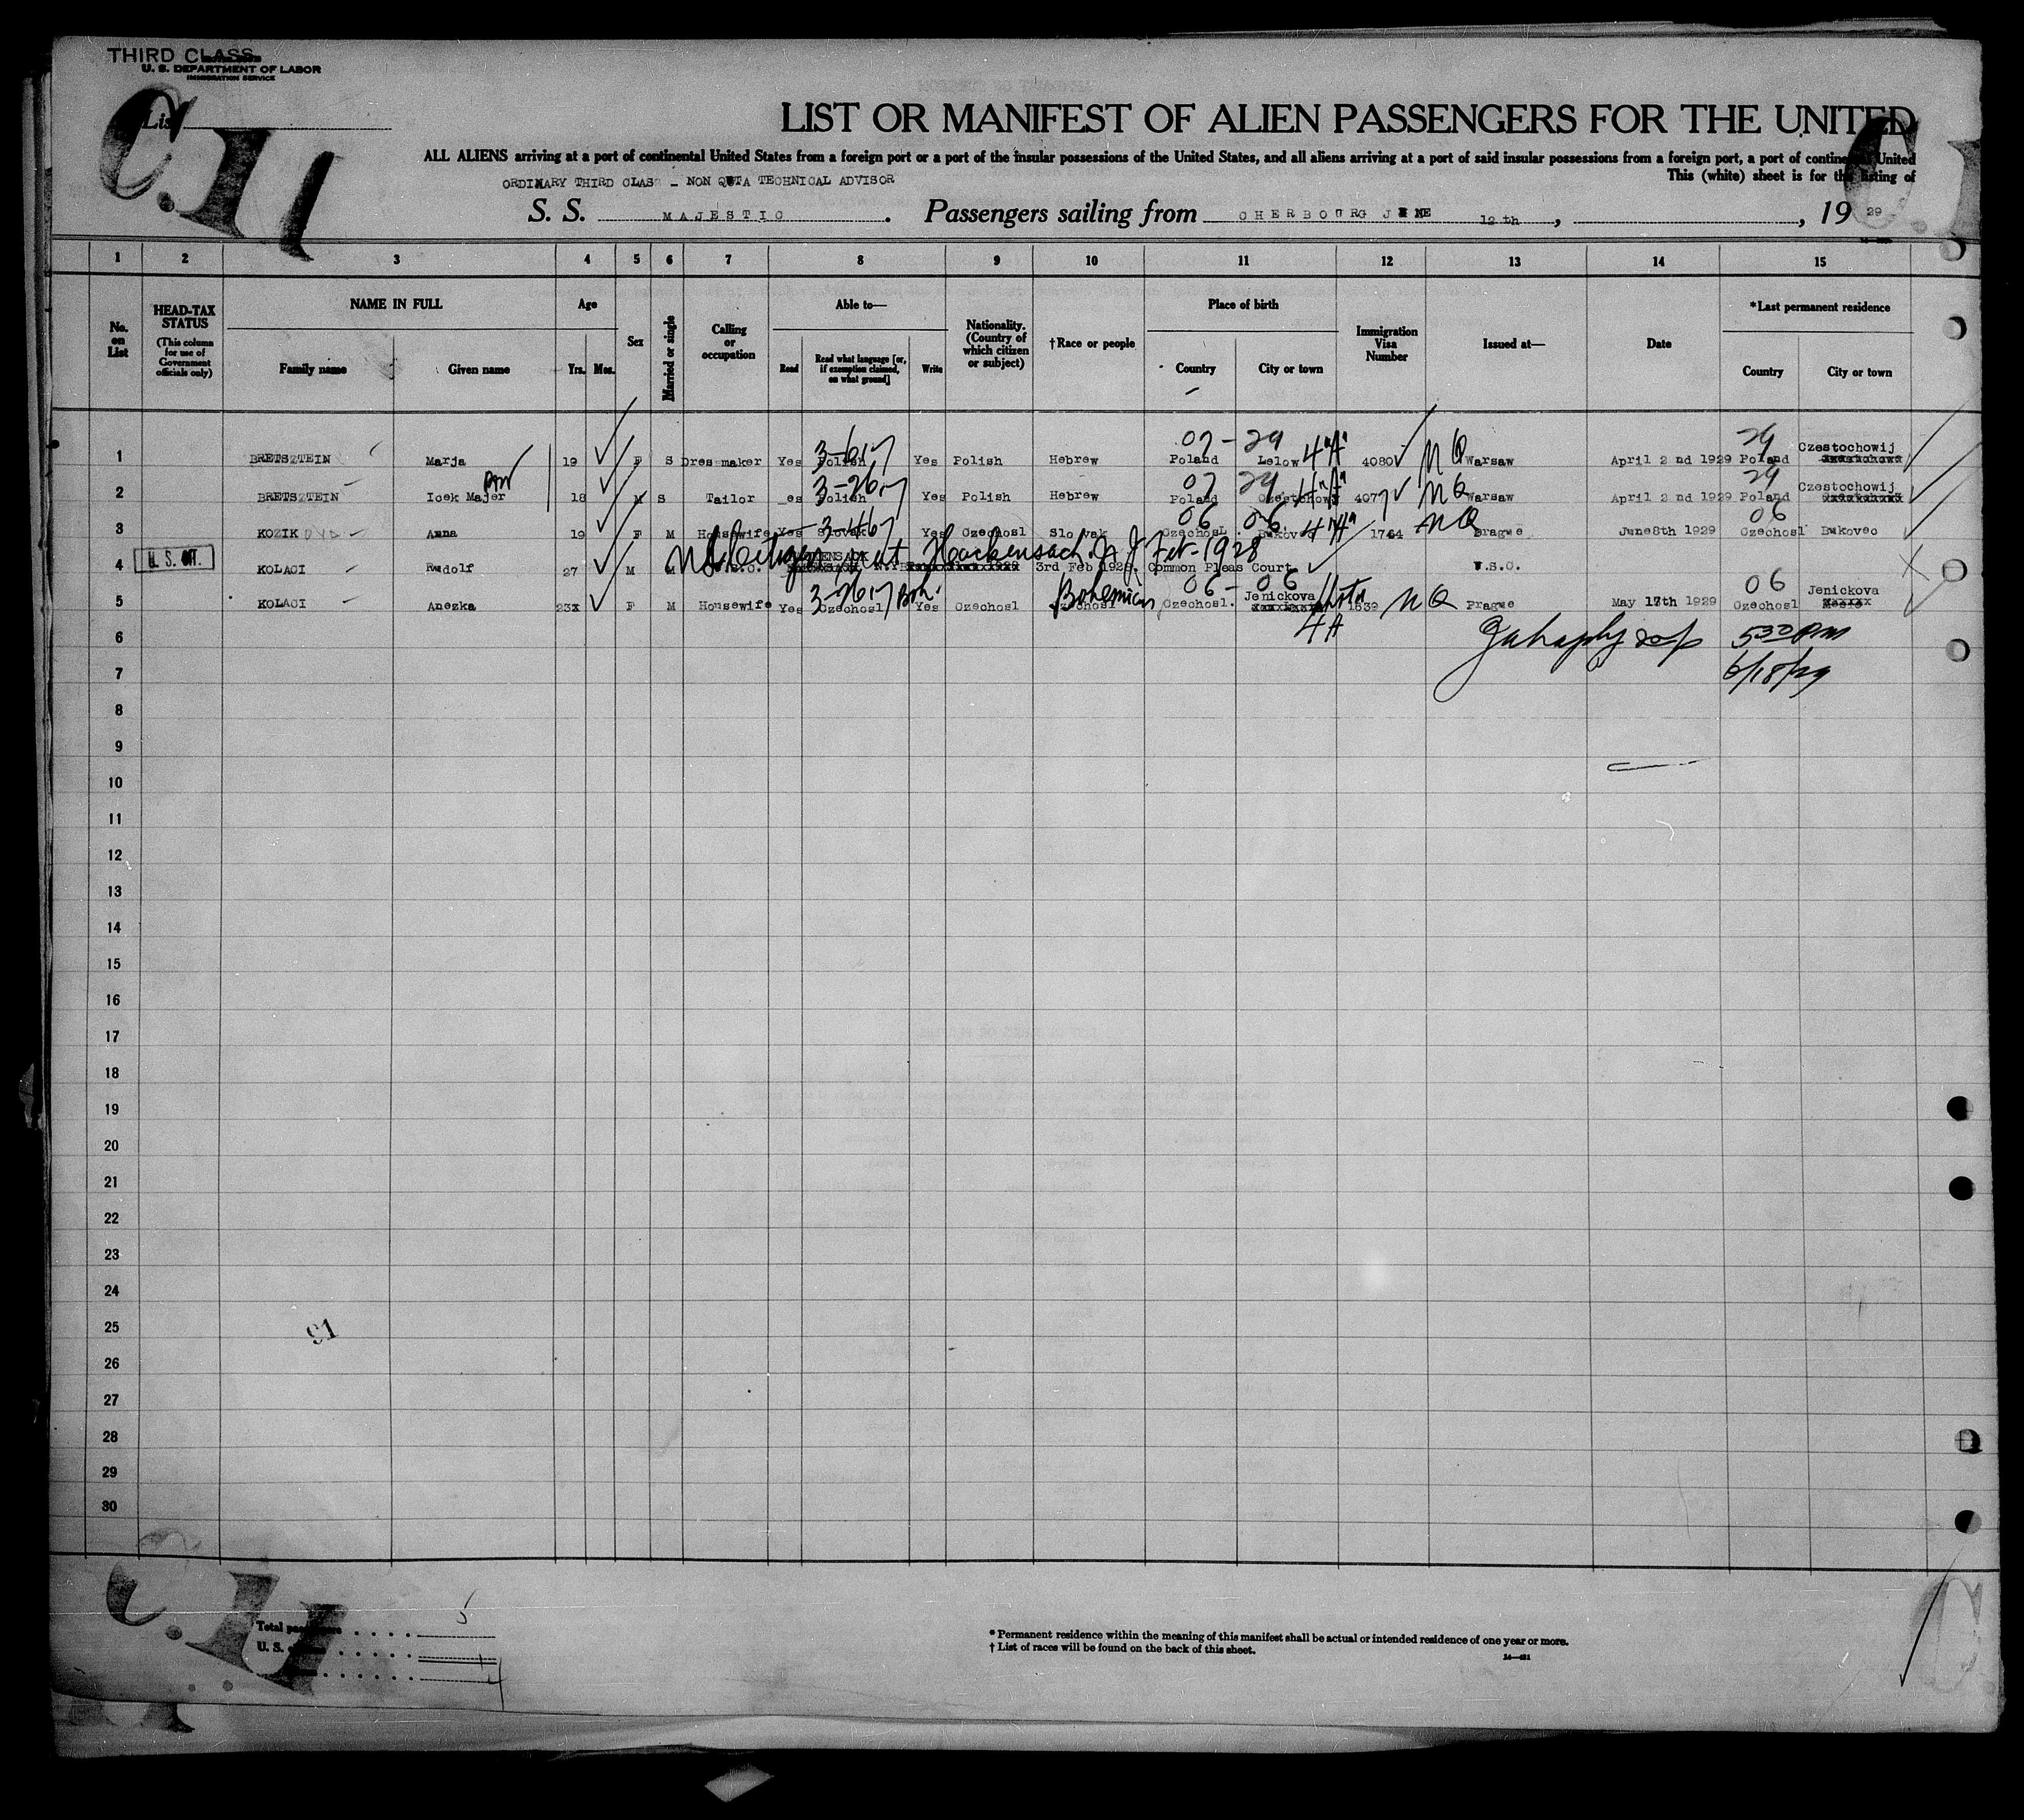 THIRD CLASS
U. S. DEPARTMENT OF LABOR
IMMIGRATION SERVICE
List
C.II
LIST OR MANIFEST OF ALIEN PASSENGERS FOR THE UNITED
ALL ALIENS arriving at a port of continental United States from a foreign port or a port of the insular possessions of the United States, and all aliens arriving at a port of said insular possessions from a foreign port, a port of continental United
This (white) sheet is for the listing of
ORDINARY THIRD CLASS - NON QUOTA TECHNICAL ADVISOR
S. S. MAJESTIC. Passengers sailing from CHERBOURG JUNE 12th, , 19 29
1 2 3 4 5 6 7 8 9 10 11 12 13 14 15
No. on List
HEAD-TAX STATUS
(This column for use of Government officials only)
NAME IN FULL
Family name Given name
Age
Yrs. Mos.
Sex
Married or single
Calling or occupation
Able to—
Read Read what language [or, if exemption claimed, on what ground] Write
Nationality. (Country of which citizen or subject)
†Race or people
Place of birth
Country City or town
Immigration Visa Number
Issued at—
Date
*Last permanent residence
Country City or town
1 BRETSZTEIN Marja 19 F S Dressmaker Yes Polish Yes Polish Hebrew Poland Lelow 4"A" 4080 NQ Warsaw April 2 nd 1929 Poland Czestochowij
2 BRETSZTEIN Icek Majer 18 M S Tailor es Polish Yes Polish Hebrew Poland 4"A" 4077 NQ Warsaw April 2 nd 1929 Poland Czestochowij
3 KOZIK Anna 19 F M Housewife Yes Slovak Yes Czechosl Slovak Czechosl. Bukovec 4"A" 1764 NQ Prague June8th 1929 Czechosl Bukovec
U.S. Citizen Nat. Hackensack N.J. Feb-1928
4 U. S. CIT. KOLACI Rudolf 27 M M 3rd Feb 1928. Common Pleas Court U.S.O.
5 KOLACI Anezka 23 F M Housewife Yes Czechosl Boh. Yes Czechosl Bohemian Czechosl. Jenickova Lhota 4A 1639 NQ Prague May 17th 1929 Czechosl Jenickova
6 5 30 PM
7 6/18/29
8
9
10
11
12
13
14
15
16
17
18
19
20
21
22
23
24
25 91
26
27
28
29
30
C.II
Total passengers 5
U. S. 1
4
* Permanent residence within the meaning of this manifest shall be actual or intended residence of one year or more.
† List of races will be found on the back of this sheet.